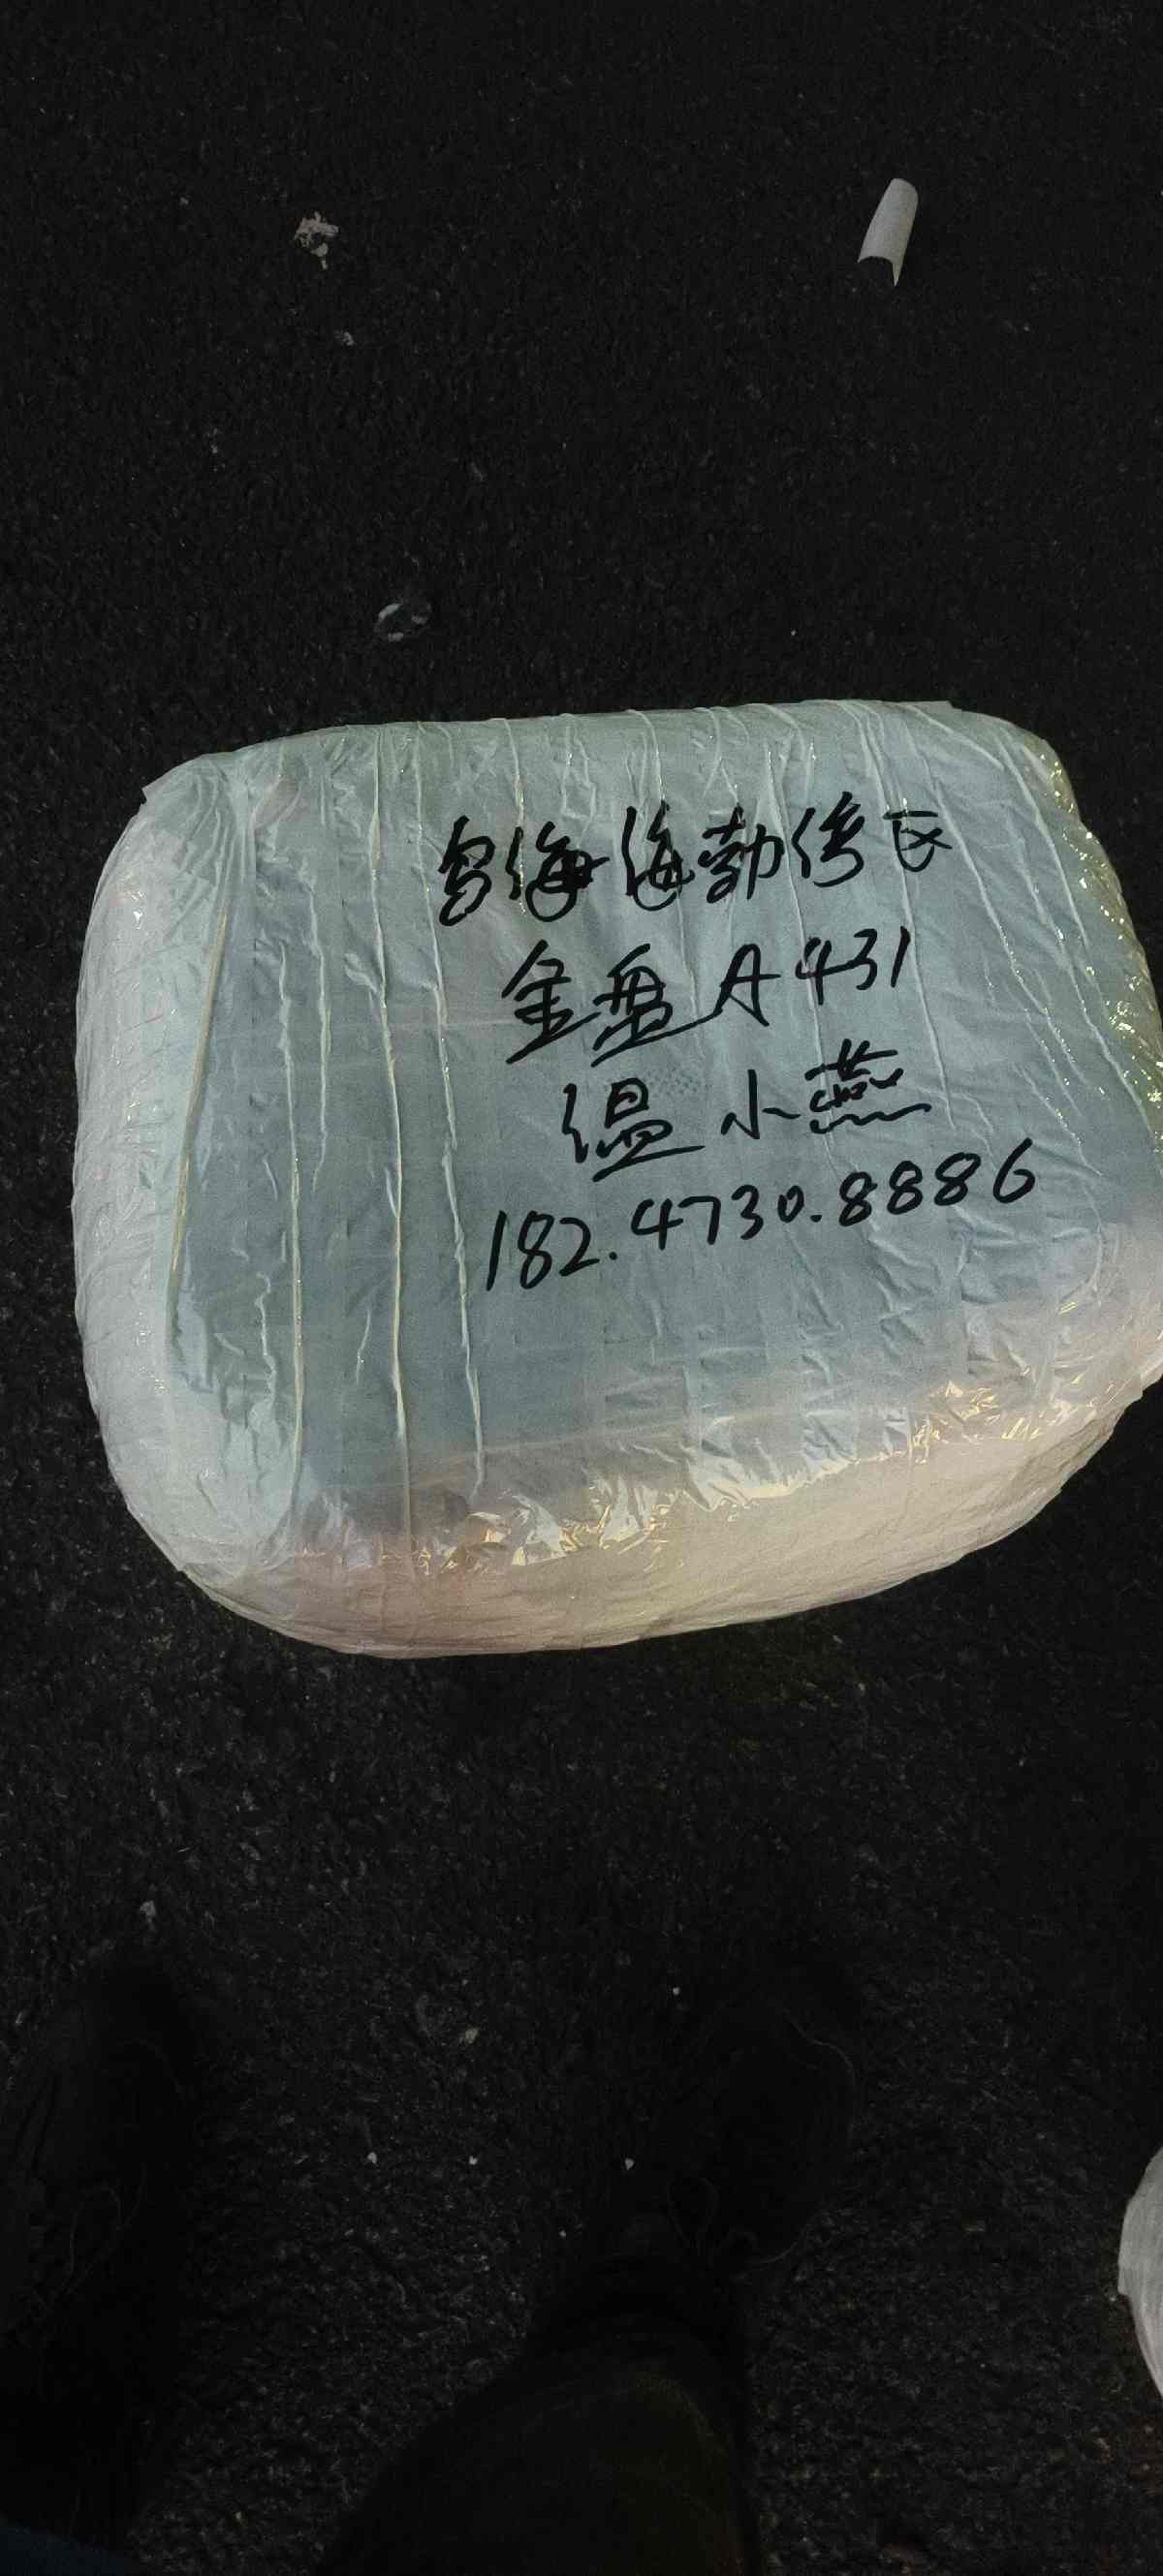 乌海海勃湾区
金盘A431
温小燕
182.4730.8886